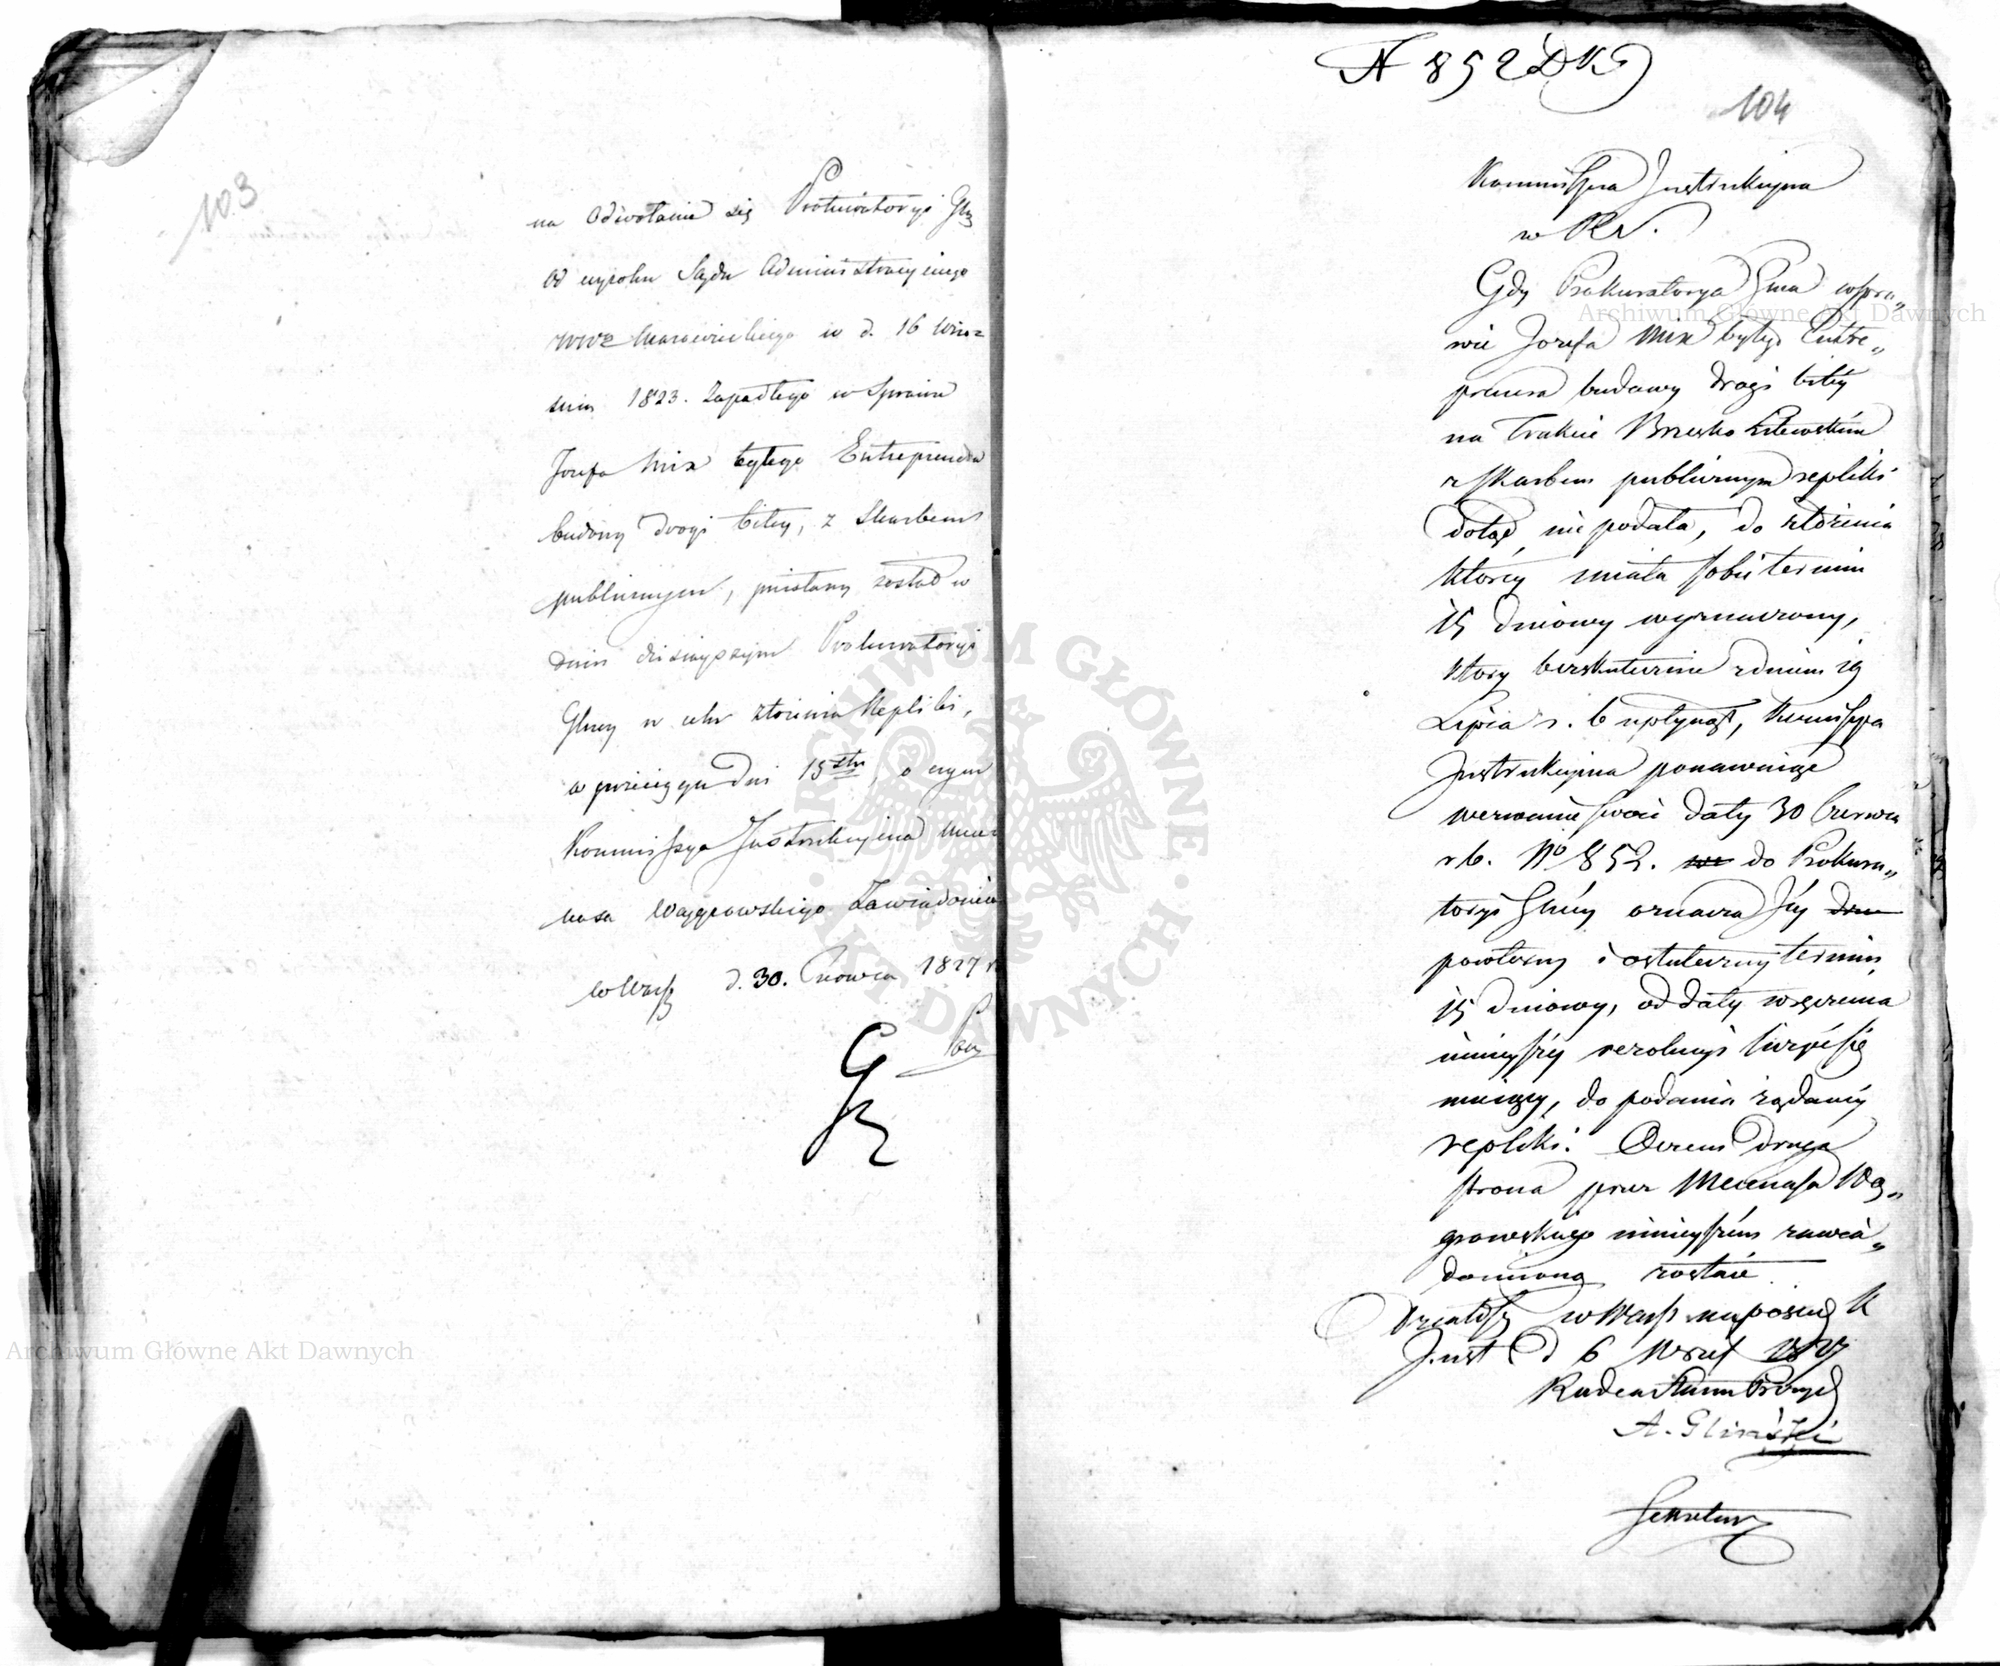 103
na Odwołanie się Prokuratoryi Gły
Od wyroku Sądu Administracyjnego
Wwa Mazowieckiego w d. 16 Wrze=
śnia 1823. Zapadłego w Sprawie
Józefa Mix byłego Entreprenera
budowy drogi bitey, z Skarbem
publicznym, przesłany został w
dniu dzisieyszym Prokuratoryi
Głney w celu złożenia Repliki,
w przeciągu Dni 15stu, o czym
Kommissya Instrukcyina Mece
nasa Wągrowskiego Zawiadomia
w Warsz d. 30. Czerwca 1827 r
N 852 DKJ
104
Kommissya Instrukcyina
w RS.
Gdy Prokuratorya Głna w spra„
wie Jozefa Mix byłego Entre„
prenera budowy drogi bitéy
na Trakcie Brzesko Litewskim
z Skarbem publicznym repliki
dotąd nie podała, do złożenia
któréy miała sobie termin
15 dniowy wyznaczony,
który bezskutecznie z dniem 19
Lipca r. b upłynął, Kommissya
Instrukcyina ponawiaiąc
wezwanie swoie daty 30 Czerwca
r b. No 852. do Prokura„
toryi Głnéy oznacza Jéy
powtórny i ostateczny termin
15 dniowy, od daty wręczenia
ninieyszéy rezolucyi liczyć się
maiący, do podania żądanéy
repliki. Oczem druga
strona przez Mecenasa Wą„
growskiego ninieyszém zawia„
domioną zostaie
Działo się w Warsz na posiedz K
Inst d 6 Wrześ 1827
Radca Stanu Prezyd
A. Gliński
Sekretarz